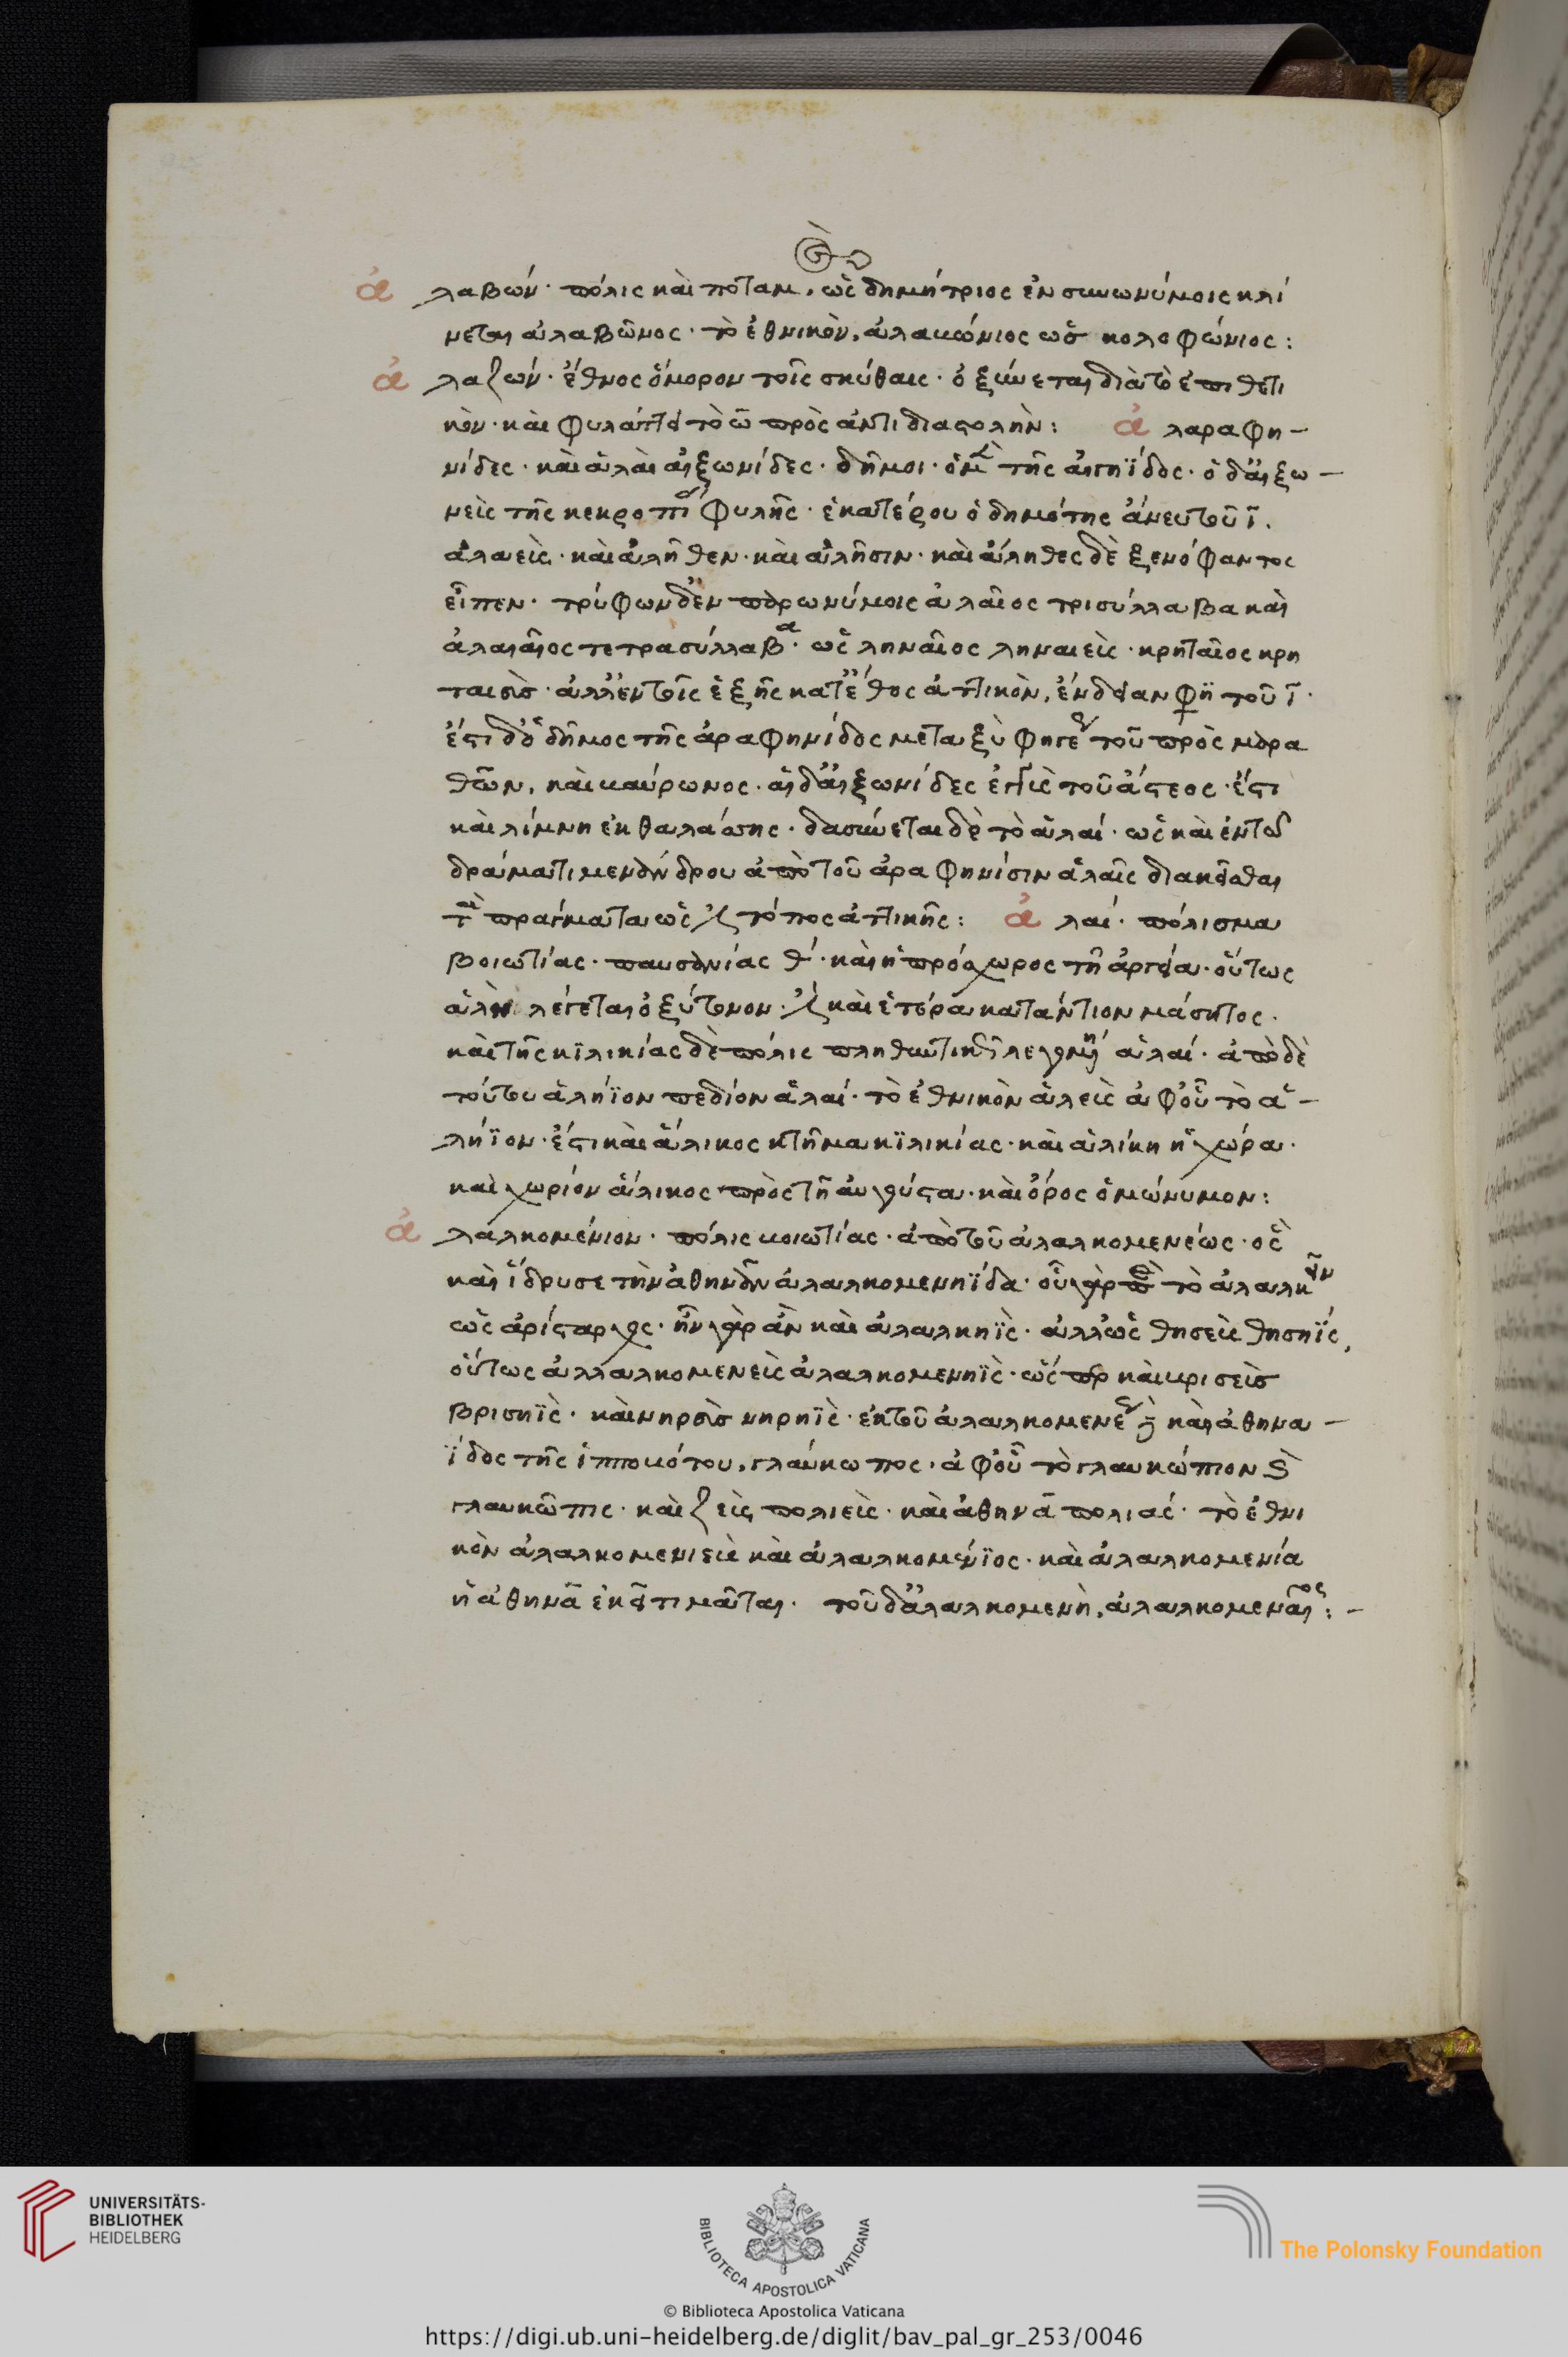 ἀλαβών· πόλις καὶ ποταμ. ὡς δημήτριος ἐν συνωνύμοις κλί
νεται ἀλαβῶνος· τὸ ἐθνικὸν, ἀλαβώνιος ὡς κολοφώνιος:
ἀλαζών· ἔθνος ὅμορον τοῖς σκύθαις· ὀξύνεται διὰ τὸ ἐπιθετι
κὸν· καὶ φυλάττει τὸ ω πρὸς ἀντιδιαστολὴν: ἀλαραφη-
νίδες· καὶ ἁλαὶ αἰξωνίδες· δῆμοι· ὁ μ τῆς αἰγηΐδος· ὁ δ' αἰξω-
νεὶς τῆς κεκροπι φυλῆς· ἑκατέρου ὁ δημότης ἄνευ τοῦ ϊ.
ἁλαεὶς· καὶ ἁλῆθεν· καὶ ἁλῆσιν· καὶ ἅληθες δὲ ξενόφαντος
εἶπεν· τρύφων δ' ἐν παρωνύμοις ἁλαῖος τρισύλλαβα καὶ
ἁλαιαῖος τετρασύλλαβα· ὡς ληναῖος ληναιεὶς· κρηταῖος κρη
ταιεὺς· ἀλλ' ἐν τοῖς ἑξῆς κατ' ἔθος ἀττικὸν, ἔνδειαν φη τοῦ ϊ·
ἔστι δ' ὁ δῆμος τῆς ἀραφηνίδος μεταξὺ φηγε τοῦ πρὸς μαρα
θῶν, καὶ βαύρωνος· αἱ δ' αἰξωνίδες ἐγγὺς τοῦ ἄστεος· ἔστι
καὶ λίμνη ἐκ θαλάσσης· δασύνεται δὲ τὸ ἁλαί· ὡς καὶ ἐν τῶ
δράματι μενάνδρου ἀπὸ τοῦ ἀραφηνίσιν ἁλαῖς διακεῖσθαι
τὰ πράγματα ὡς τόπος ἀττικῆς: ἀλαί· πόλισμα
βοιωτίας· παυσανίας θ· καὶ ἡ πρόσχωρος τῆ ἀργεία· οὕτως
ἁλαὶ λέγεται ὀξύτονον· καὶ ἑτέρα κατάντιον μάσητος.
καὶ τῆς κϊλικίας δὲ πόλις πληθυντικῶς λεγομένη ἁλαί· ἀπὸ δὲ
τούτου ἀλήϊον πεδίον ἁλαί· τὸ ἐθνικὸν ἁλεὶς ἀφ' οὗ τὸ ἀ-
λήϊον· ἔστι καὶ ἅλικος κτῆμα κϊλικίας· καὶ ἁλίκη ἡ χώρα·
καὶ χωρίον ἅλικος πρὸς τῆ αὐγούστα· καὶ ὄρος ὁμώνυμον:
ἀλαλκομένιον· πόλις βοιωτίας· ἀπὸ τοῦ ἀλαλκομενέως· ὃς
καὶ ἵδρυσε τὴν ἀθηνᾶν ἀλαλκομενηΐδα· οὐ γὰρ παρὰ τὸ ἀλαλκεῖν
ὡς ἀρίσταρχος· ἦν γὰρ ἂν καὶ ἀλαλκηῒς· ἀλλ' ὡς θησεὶς θησηΐς,
οὕτως ἀλλαλκομενεὶς ἀλαλκομενηῒς· ὥσπερ καὶ βρισεὺς
βρισηῒς· καὶ νηρεὺς νηρηῒς· ἐκ τοῦ ἀλαλκομενέ καὶ ἀθηνα-
ΐδος τῆς ἱπποβότου, γλαύκωπος· ἀφ' οὗ τὸ γλαυκώπιον
γλαυκῶπις· καὶ ζεὶς πολιεὶς· καὶ ἀθηνᾶ πολιάς· τὸ ἐθνι
κὸν ἀλαλκομενιεὶς καὶ ἀλαλκομένϊος· καὶ ἀλαλκομενία
ἡ ἀθηνᾶ ἐκεῖ τιμᾶται. τοῦ δ' ἀλαλκομενὴ, ἀλαλκομεναῖος:-
UNIVERSITÄTS-
BIBLIOTHEK
HEIDELBERG
BIBLIOTECA APOSTOLICA VATICANA
The Polonsky Foundation
© Biblioteca Apostolica Vaticana
https://digi.ub.uni-heidelberg.de/diglit/bav_pal_gr_253/0046